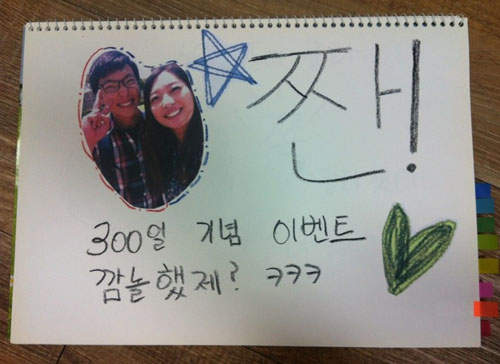 짠!
300일 기념 이벤트
깜놀했제? ㅋㅋㅋ